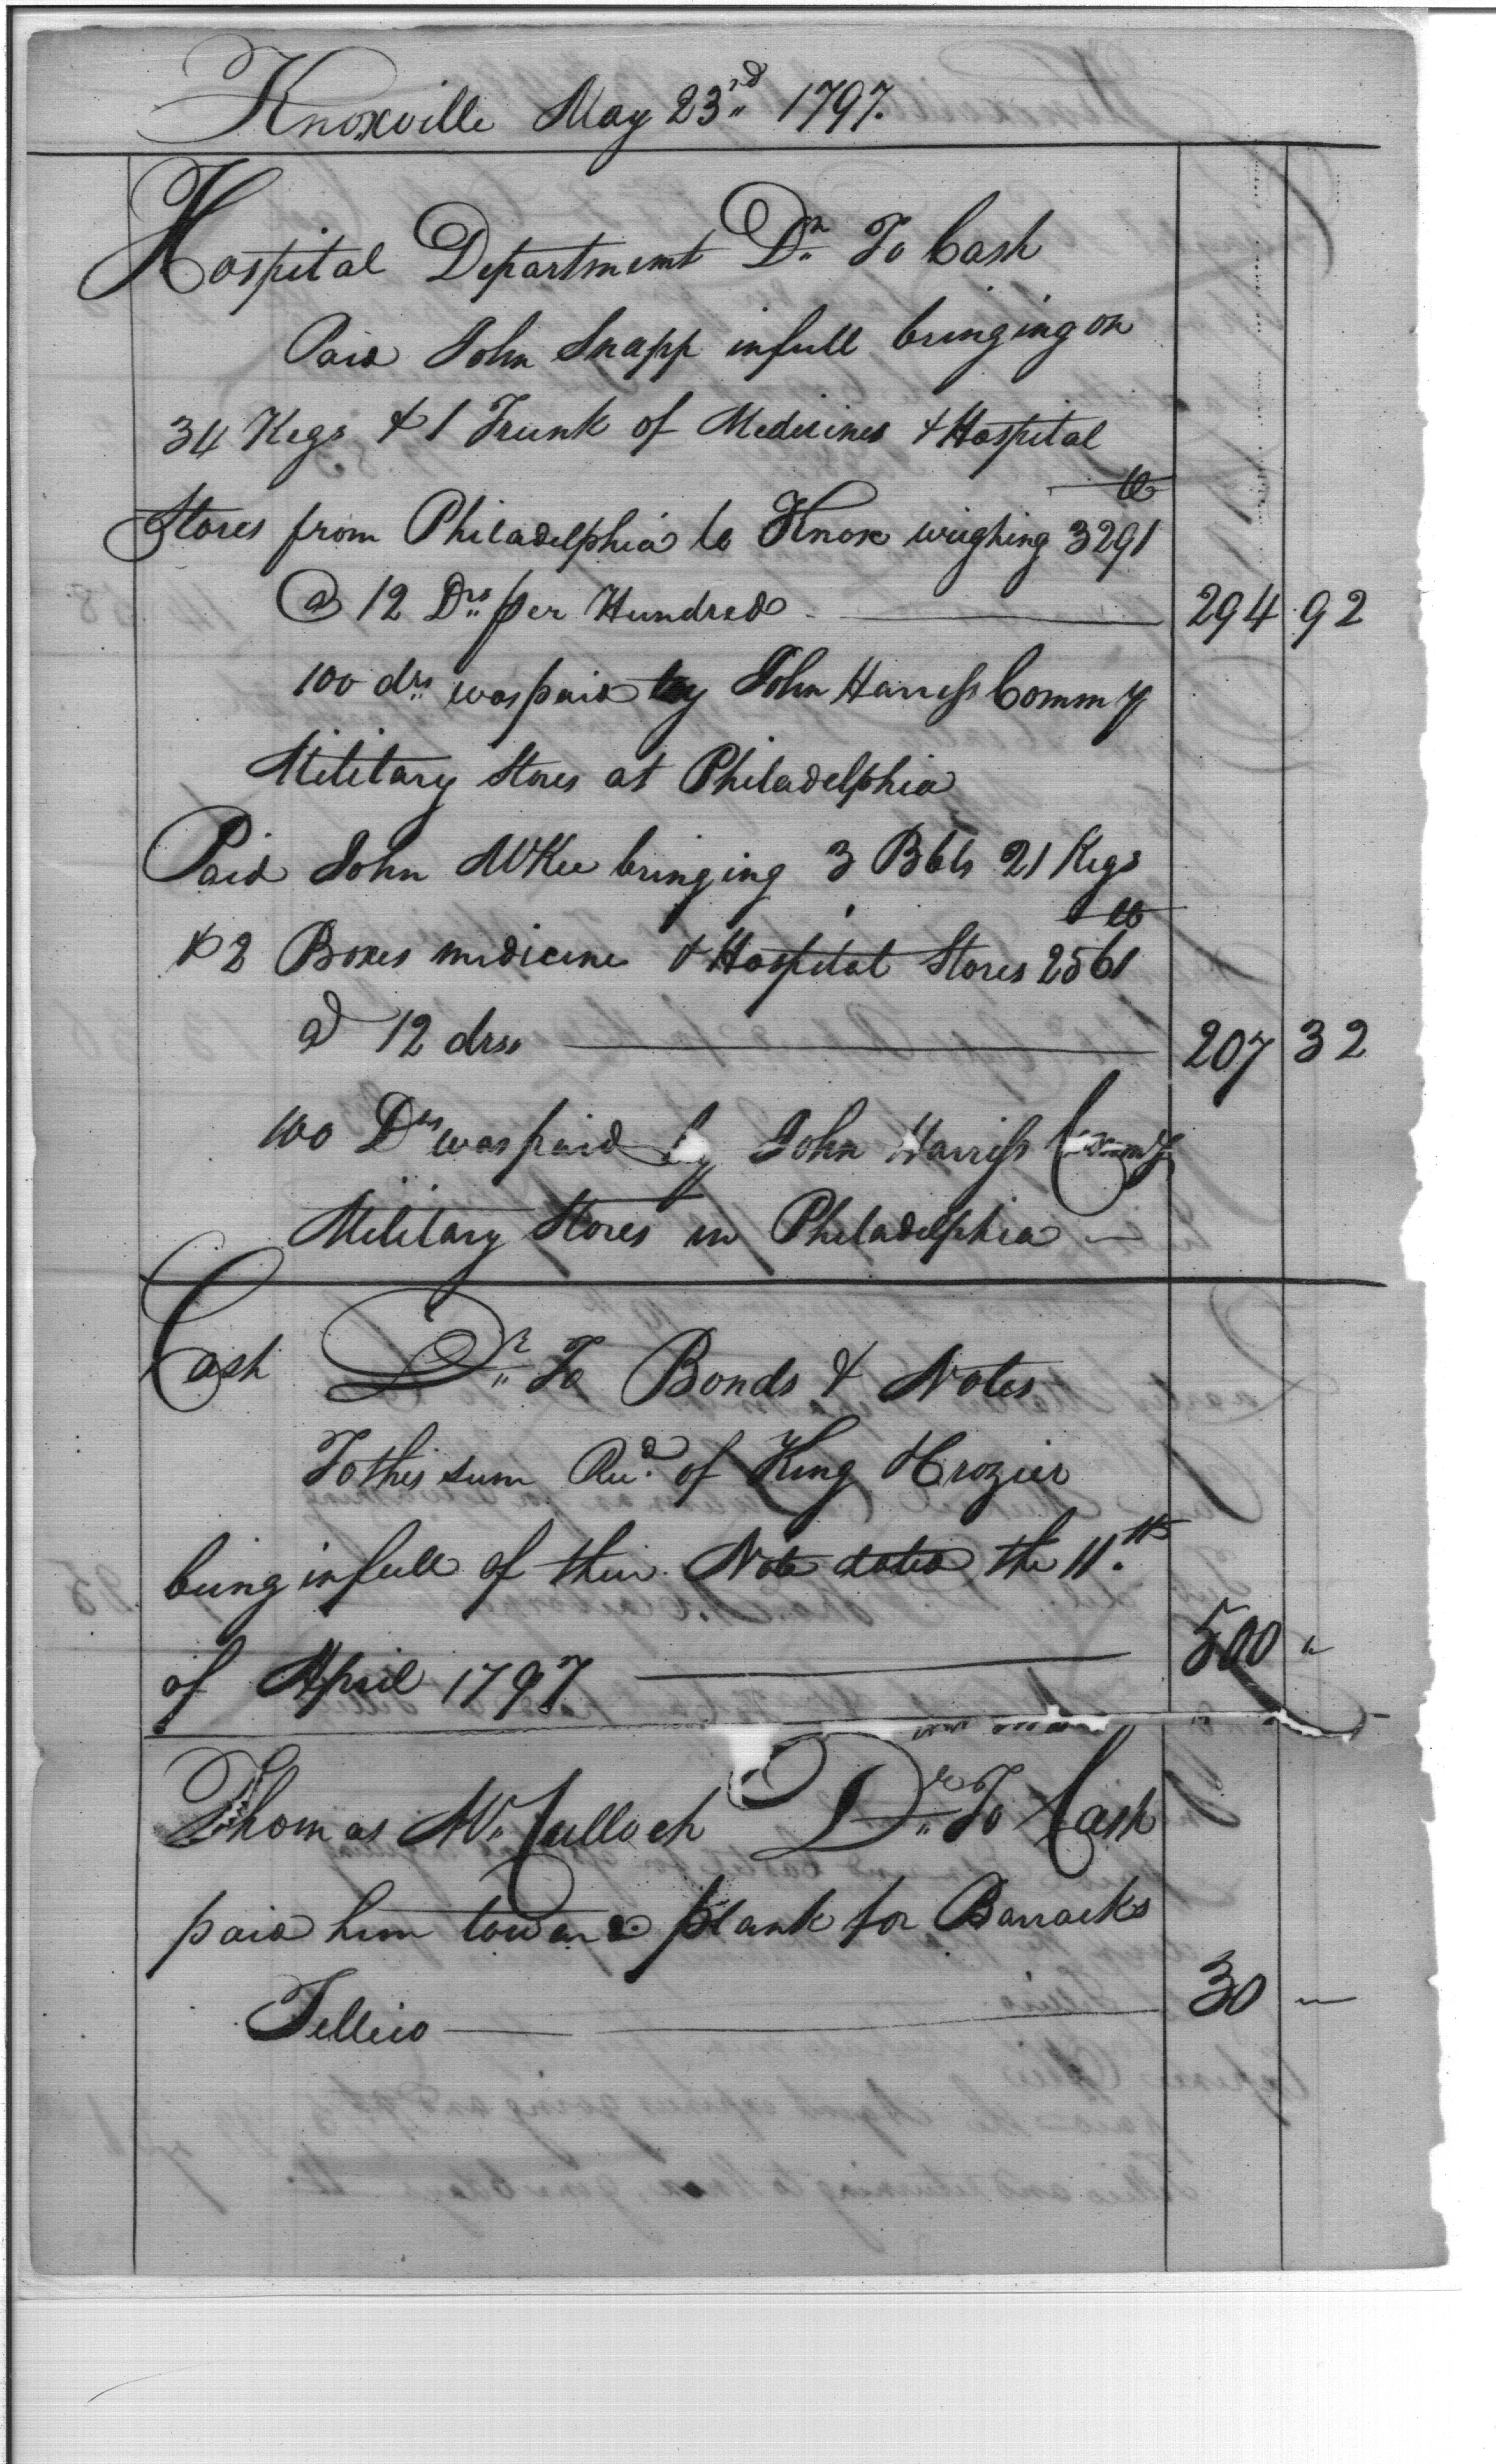 Knoxville May 23rd 1797.
Hospital Department Dr To Cash
Paid John Snapp in full bringing on
34 Kegs & 1 Trunk of Medicines & Hospital
lb
Stores from Philadelphia to Knox weighing 3291
@ 12 Drs per Hundred 294 92
100 drs was paid by John Harriss Commy
Military Stores at Philadelphia
Paid John McKee bringing 3 Bbls 21 Kegs
lb
& 2 Boxes medicine & Hospital Stores 2561
@ 12 drs 207 32
100 Drs was paid by John Harriss Commy
Military Stores in Philadelphia
Cash Dr To Bonds & Notes
To this sum Recd of King & Crozier
being in full of their Note dated the 11th
of April 1797 500 "
Thomas McCulloch Dr To Cash
paid him toward plank for Barracks
Tellico 30 —